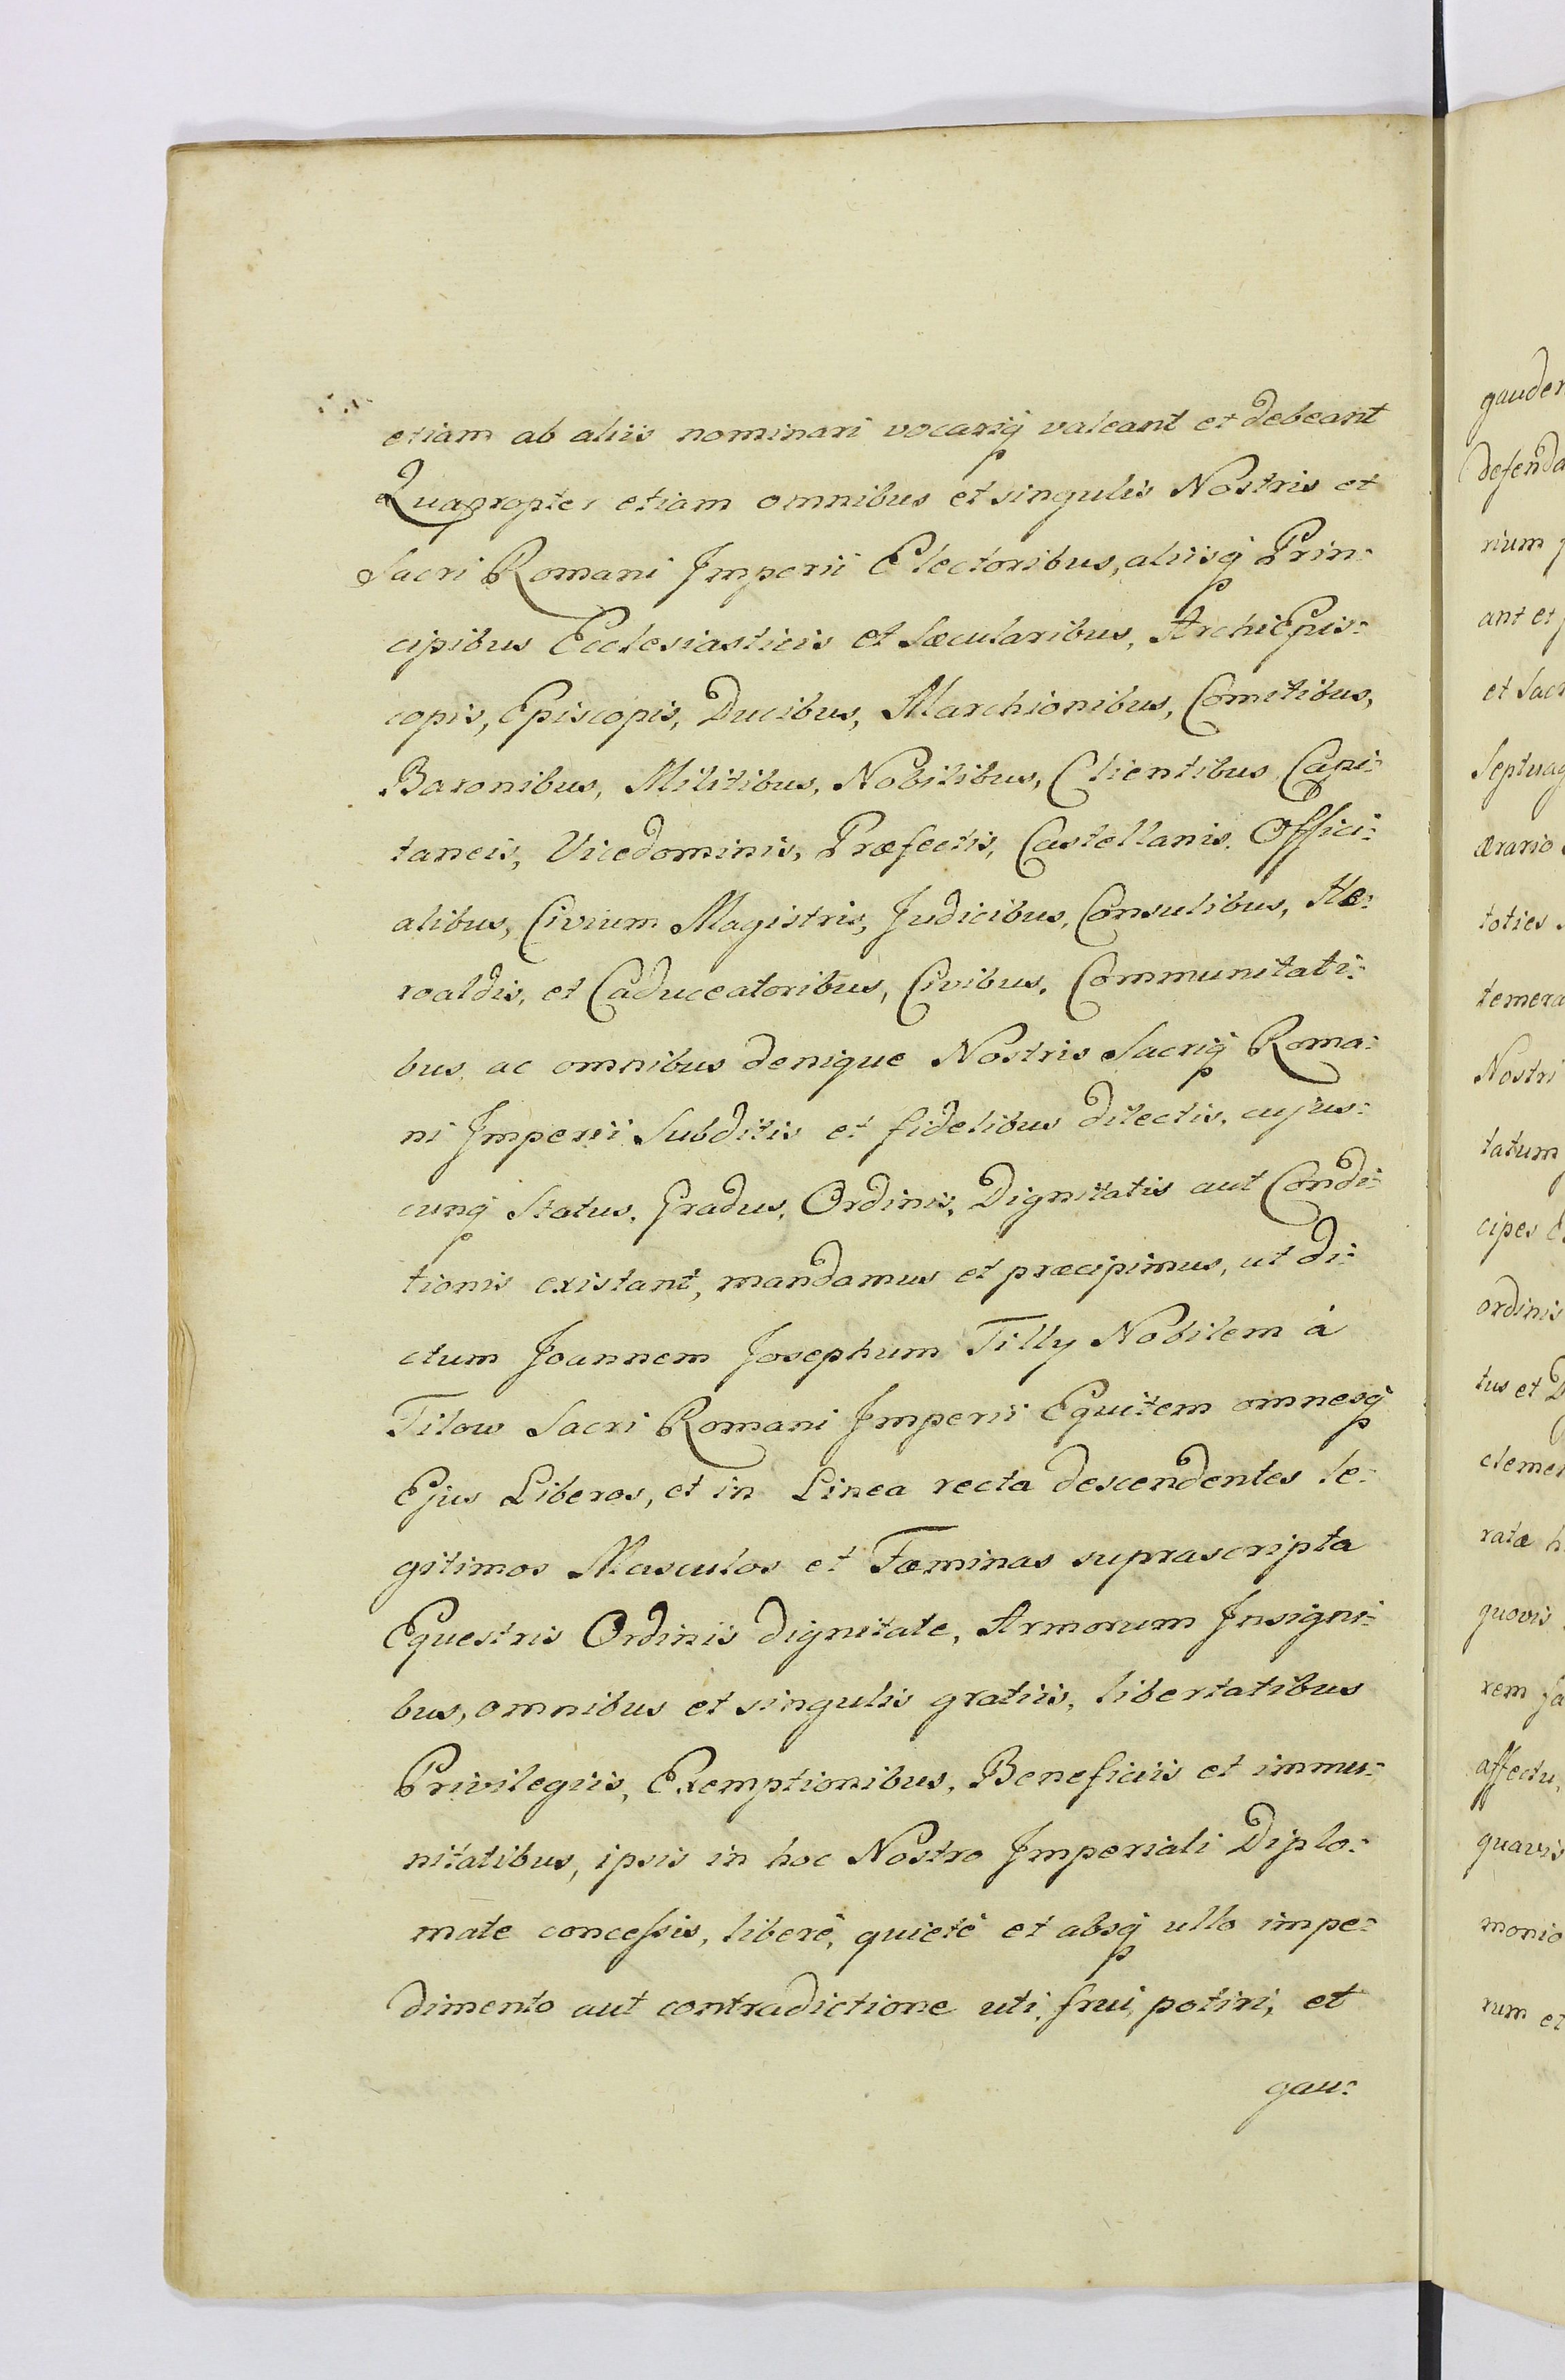 etiam ab aliis nominari vocariq valeant et debeant
Quapropter etiam omnibus et singulis Nostris et
Sacri Romani Imperii Electoribus, aliisq Prin:
cipibus Ecclesiasticis et Sæcularibus, ArchiEpis:
copis, Episcopis, Ducibus, Marchionibus, Comitibus,
Baronibus, Militibus, Nobilibus, Clientibus Capi:
taneis, Vicedominis, Præfectis, Castellanis, Offici:
alibus, Civium Magistris, Judicibus, Consulibus, He:
roaldis, et Caduceatoribus, Civibus, Communitati:
bus ac omnibus denique Nostris Sacriq Roma:
ni Imperii Subditis et fidelibus dilectis, cujus:
cunq Status, Gradus, Ordinis, Dignitatis aut Condi:
tionis existant, mandamus et præcipimus, ut di:
ctum Joannem Josephum Tilly Nobilem à
Tilow Sacri Romani Imperii Equitem omnesq
Ejus Liberos, et in Linea recta descendentes le:
gitimos Masculos et Fæminas suprascripta
Equestris Ordinis dignitate, Armorum Insigni:
bus, omnibus et singulis gratiis, libertatibus
Privilegiis, Exemptionibus, Beneficiis et immu:
nitatibus, ipsis in hoc Nostro Imperiali Diplo:
mate concessis, liberè, quietè et absq ullo impe:
dimento aut contradictione uti, frui, potiri, et
gau:
gauder
defenda
rium
ant et
et Sacr
Septuag
ærario
toties
temera
Nostri
tatum
cipes
ordinis
tus et D
clemen
ratæ h
quovis
rem fa
affectu,
quavis
monio
rum et